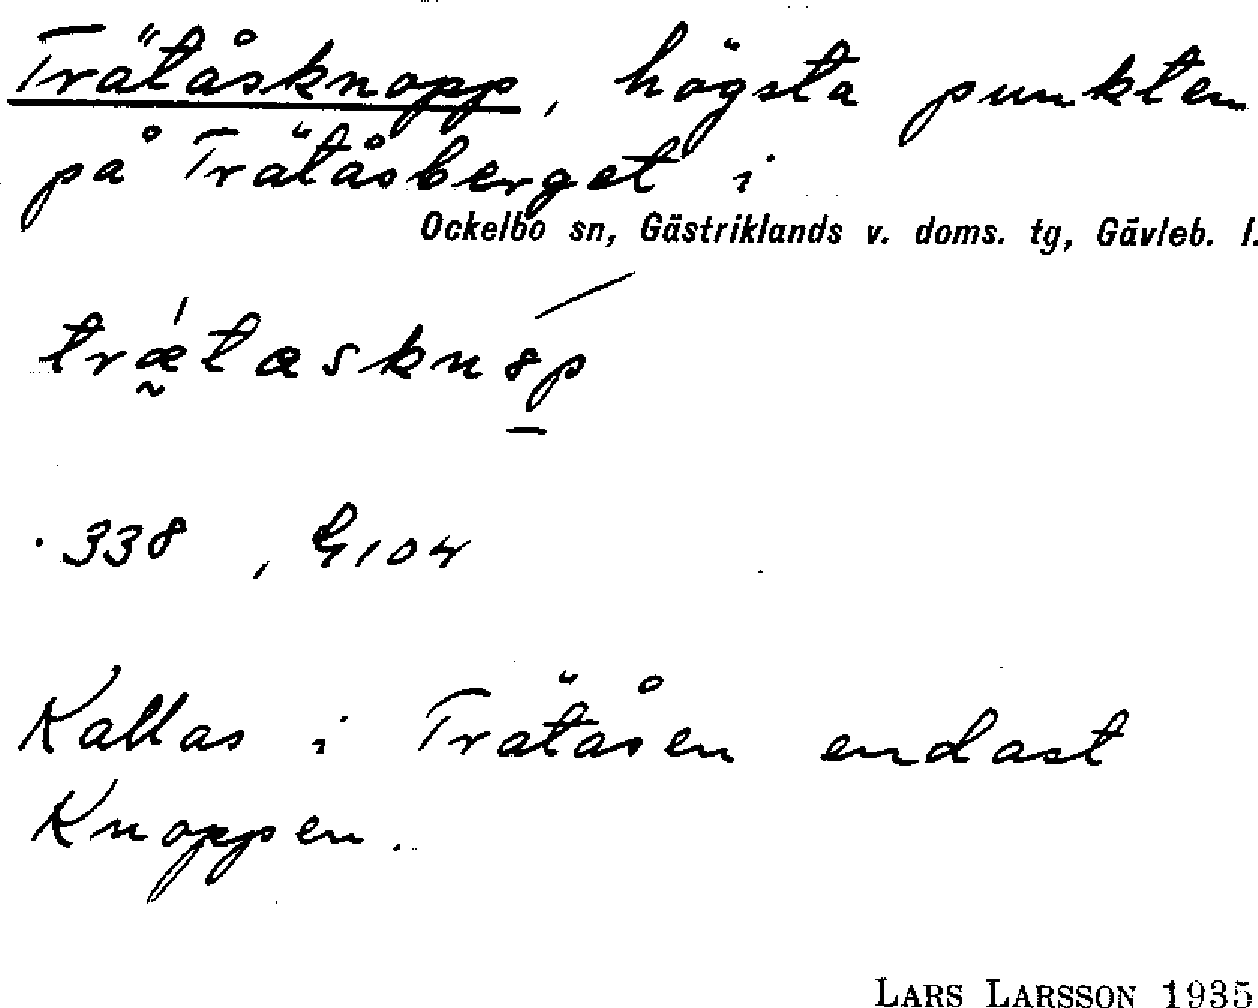 Trätåsknopp, högsta punkten
på Trätåsberget i
Ockelbo sn, Gästriklands v. doms. tg, Gävleb. l.
· 338 , G104
Kallas i Trätåsen endast
Knoppen.
LARS LARSSON 1935